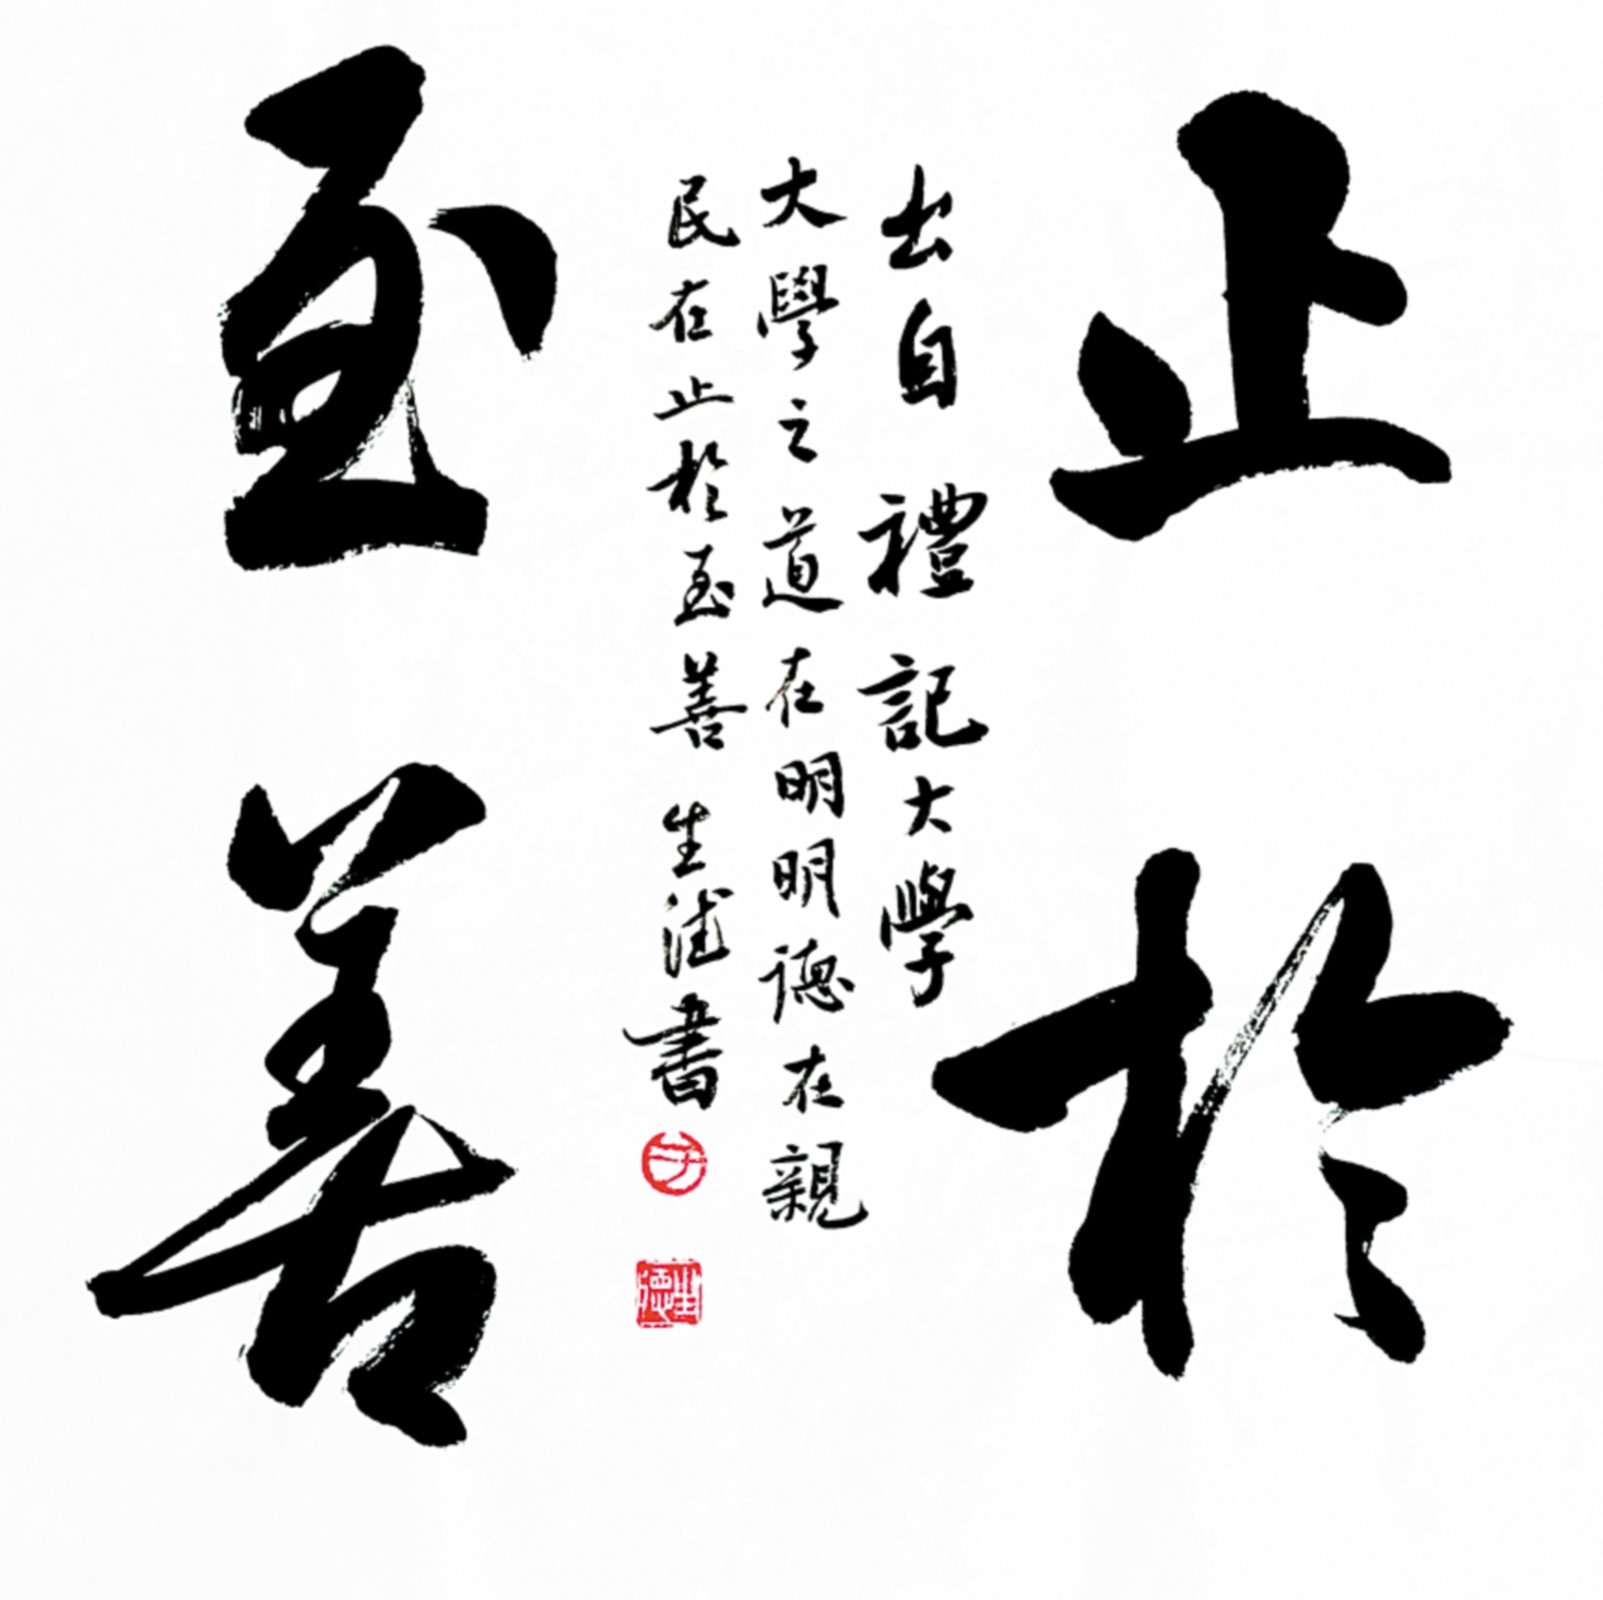 止於
出自禮記大學
大學之道在明明德在親
民在止於至善 生德書
至善
生德